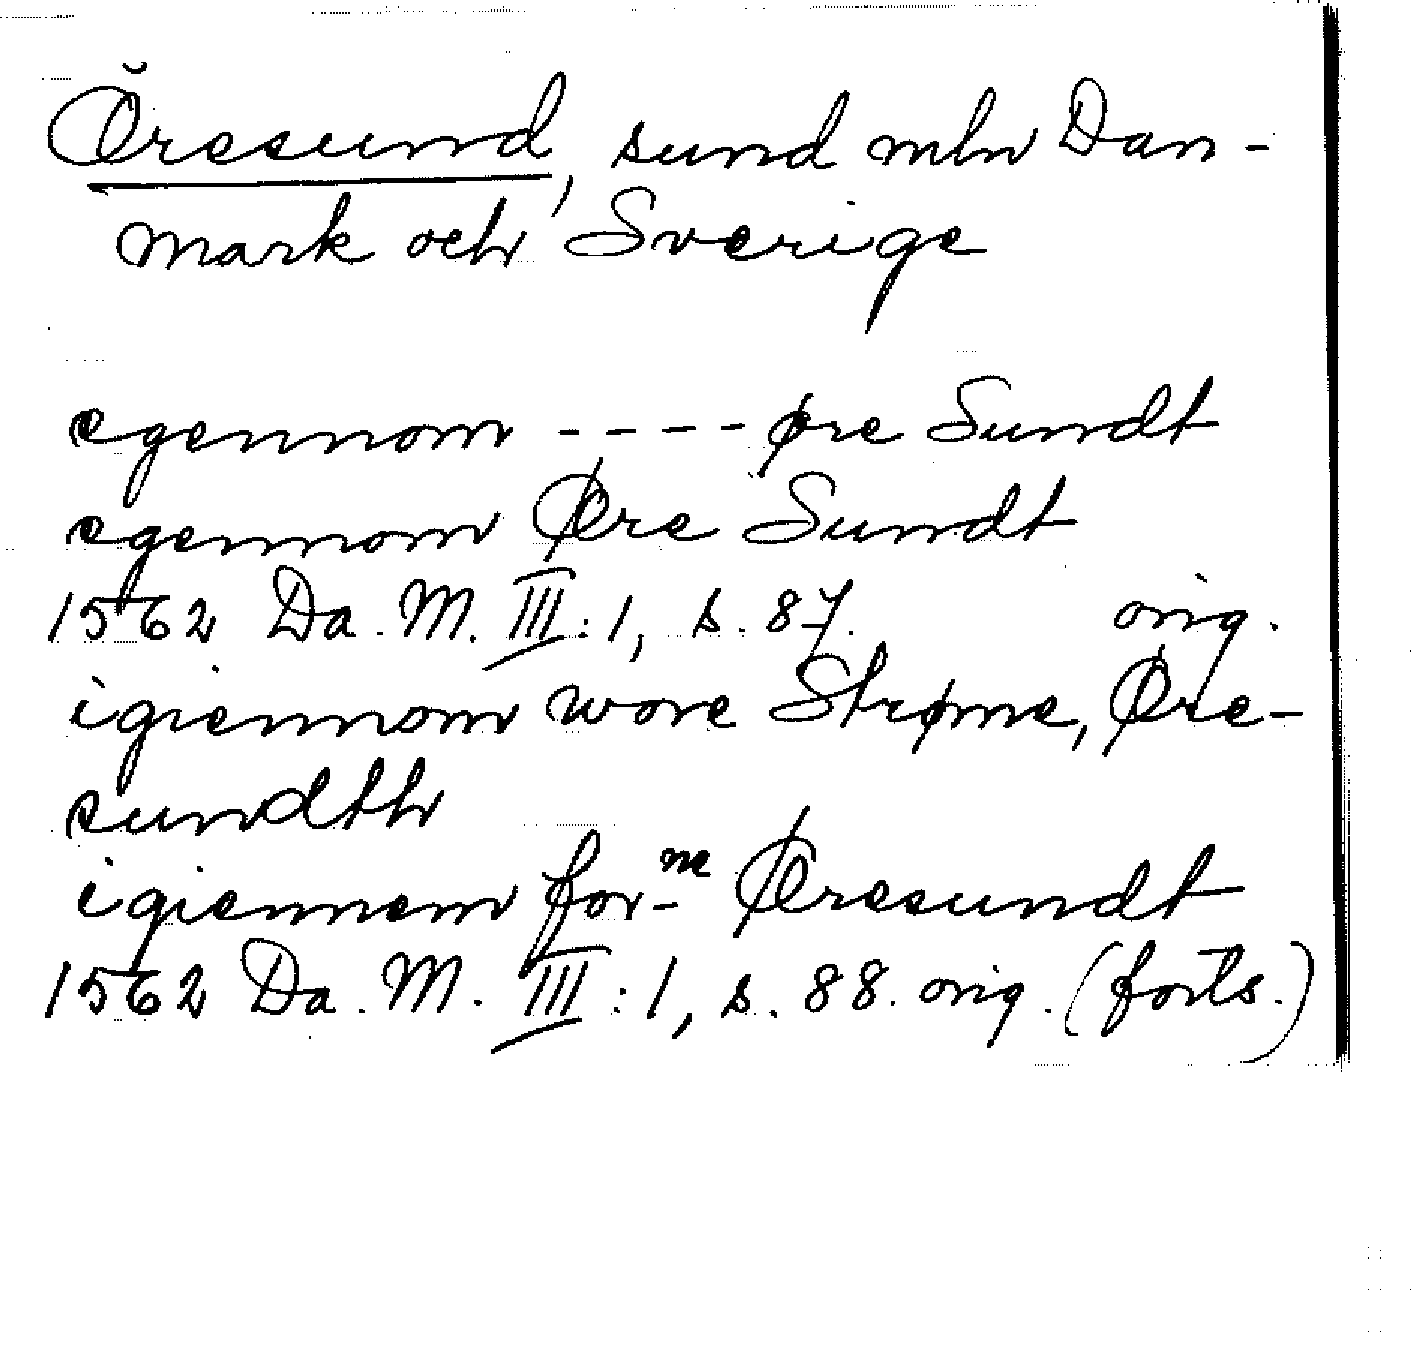 Öresund, sund mln Dan-
mark och Sverige
egennom ---- øre Sundt
egennom Øre Sundt
1562 Da. M. III:1, s. 87. orig.
igiennom wore Strøme, Øre-
sundth
igiennem for-ne Øresundt
1562 Da. M. III:1, s. 88. orig. (forts.)